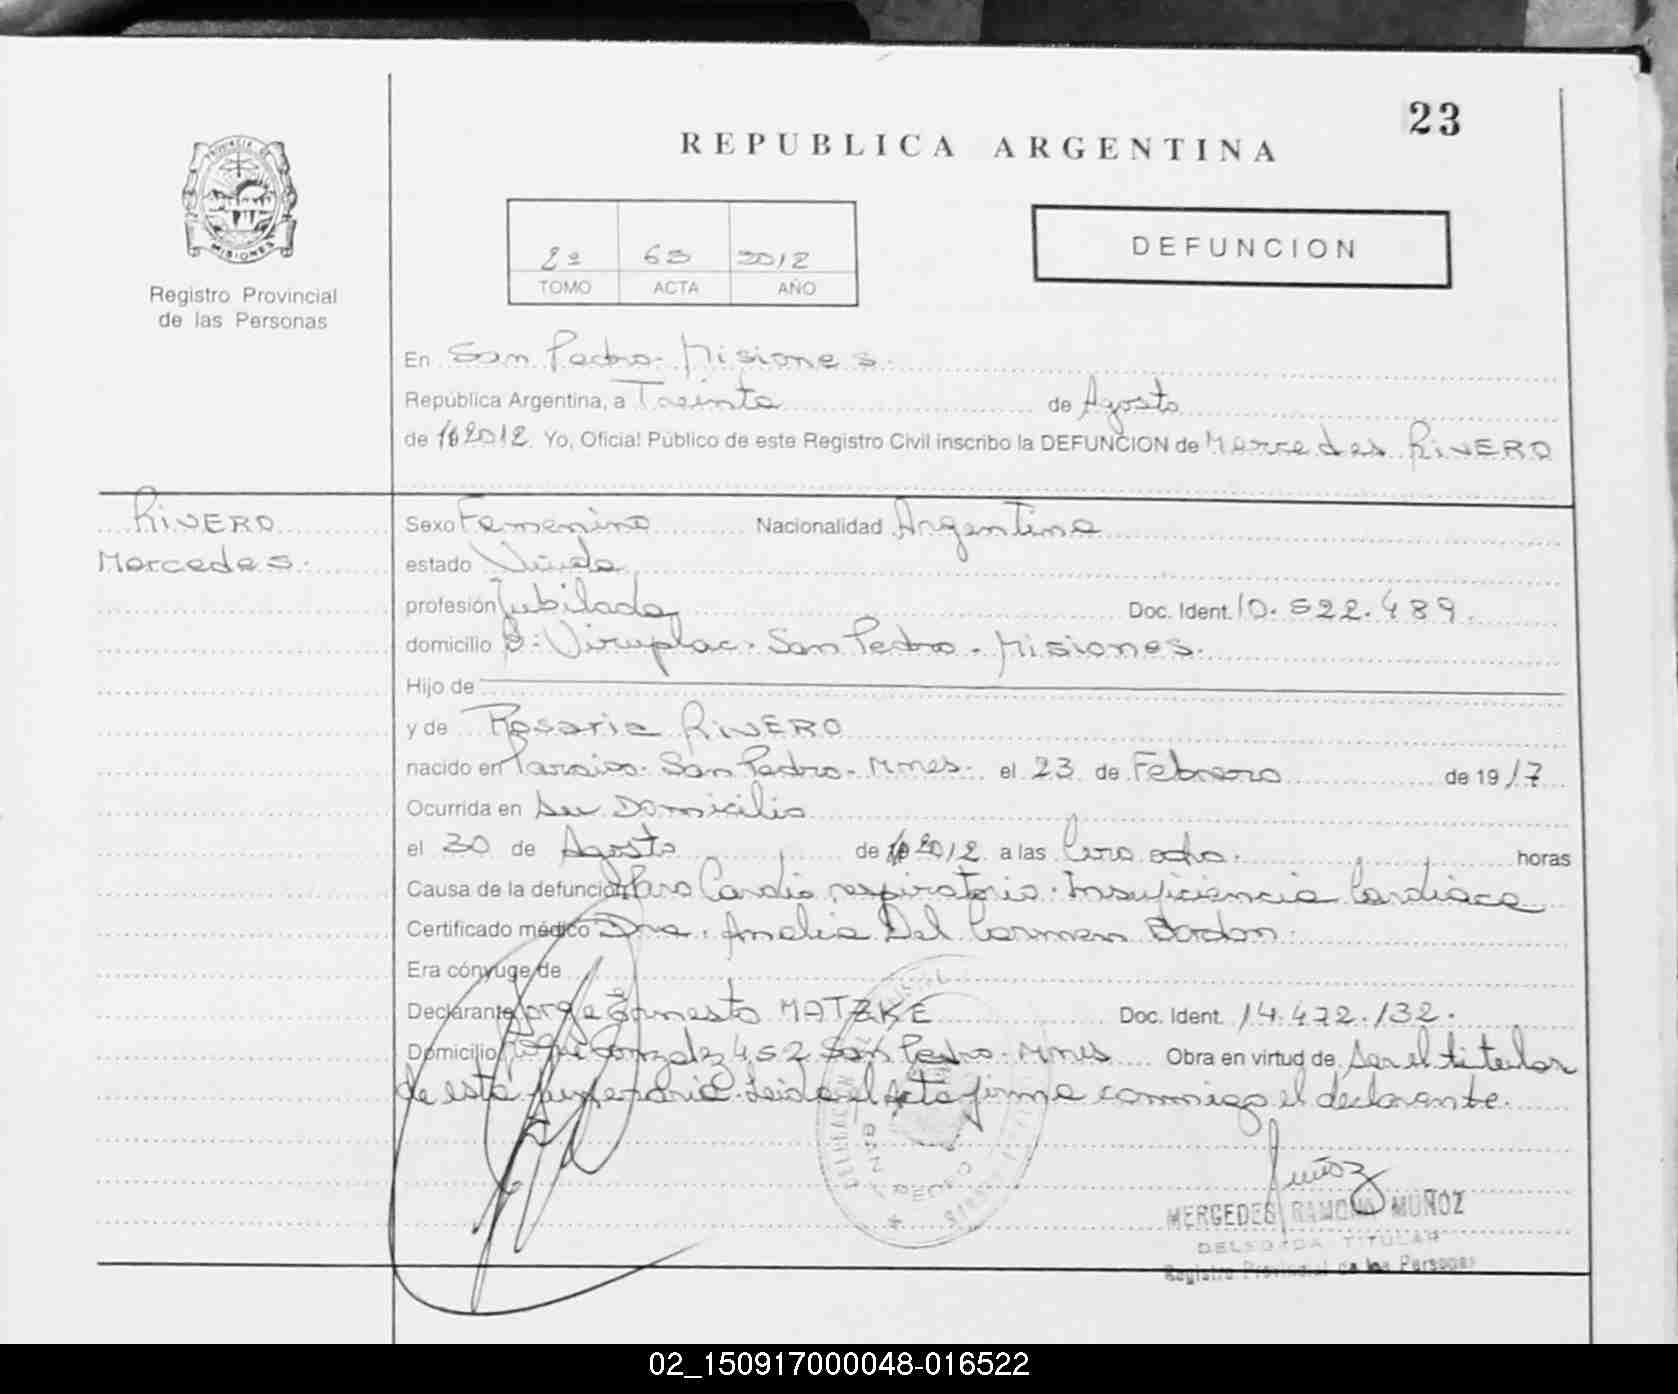 23
REPUBLICA ARGENTINA
PROVINCIA DE
MISIONES
Registro Provincial
de las Personas
2º 63 2012
TOMO ACTA AÑO
DEFUNCION
En San Pedro. Misiones.
República Argentina, a Treinta de Agosto
de 2012. Yo, Oficial Público de este Registro Civil inscribo la DEFUNCION de Mercedes RIVERO
RIVERO
Mercedes.
Sexo Femenino Nacionalidad Argentina
estado Viuda
profesión Jubilada Doc. Ident. 10.522.489.
domicilio B. Viruplac. San Pedro. Misiones.
Hijo de
y de Rosaria RIVERO
nacido en Paraiso. San Pedro. Mnes. el 23 de Febrero de 1917
Ocurrida en su Domicilio
el 30 de Agosto de 2012 a las Cero ocho. horas
Causa de la defunción Paro Cardio respiratorio. Insuficiencia Cardiaca
Certificado médico Dra. Amalia Del Carmen Bordon.
Era cónyuge de
Declarante Jorge Ernesto MATZKE Doc. Ident. 14.472.132.
Domicilio Gonzalz 452 San Pedro. Mnes Obra en virtud de ser el titular
de esta funeraria. Leida el Acta firma conmigo el declarante.
DELEGACION
SAN PEDRO
Muñoz
MERCEDES RAMONA MUÑOZ
DELEGADA TITULAR
Registro Provincial de las Personas
02_150917000048-016522